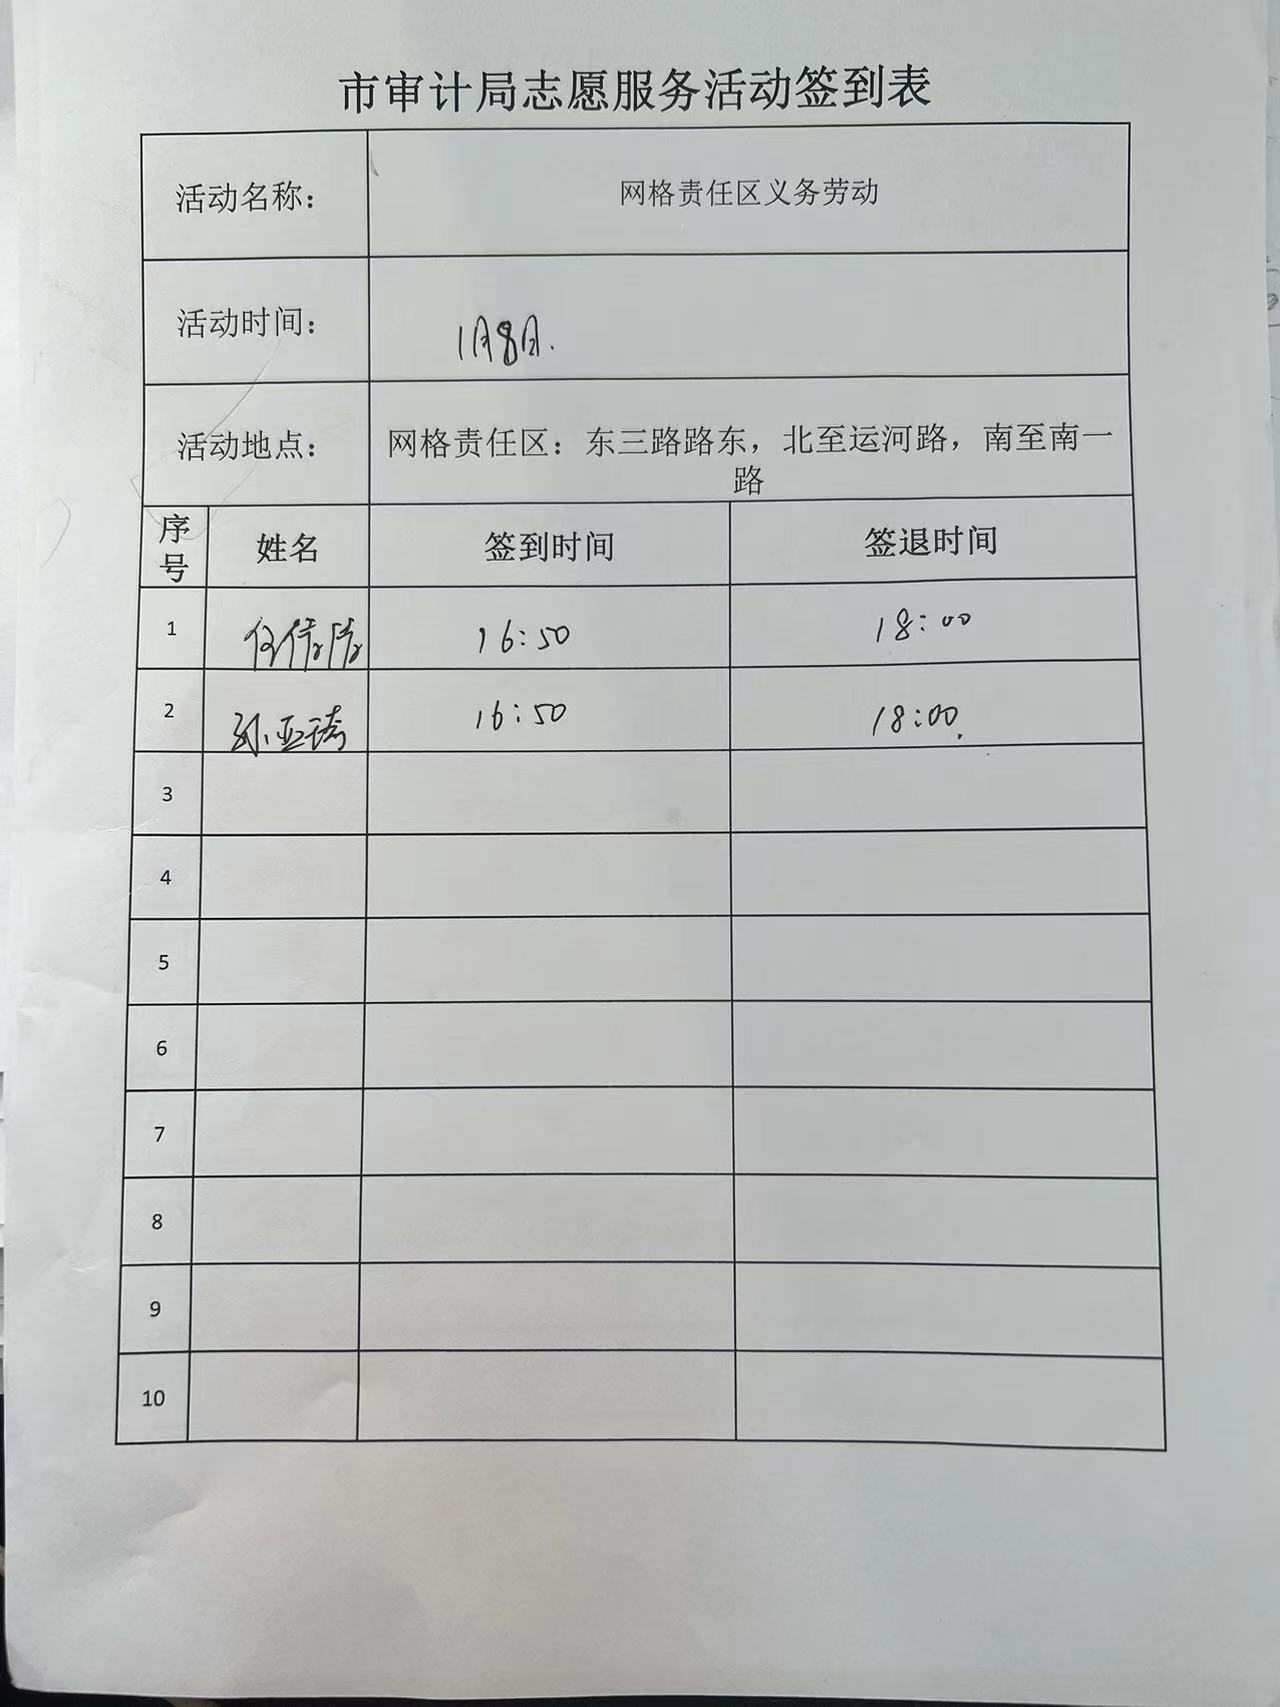 市审计局志愿服务活动签到表
活动名称： 网格责任区义务劳动
活动时间： 1月8日.
活动地点： 网格责任区：东三路路东，北至运河路，南至南一
路
序号 姓名 签到时间 签退时间
1 16:50 18:00
2 孙亚琦 16:50 18:00.
3
4
5
6
7
8
9
10